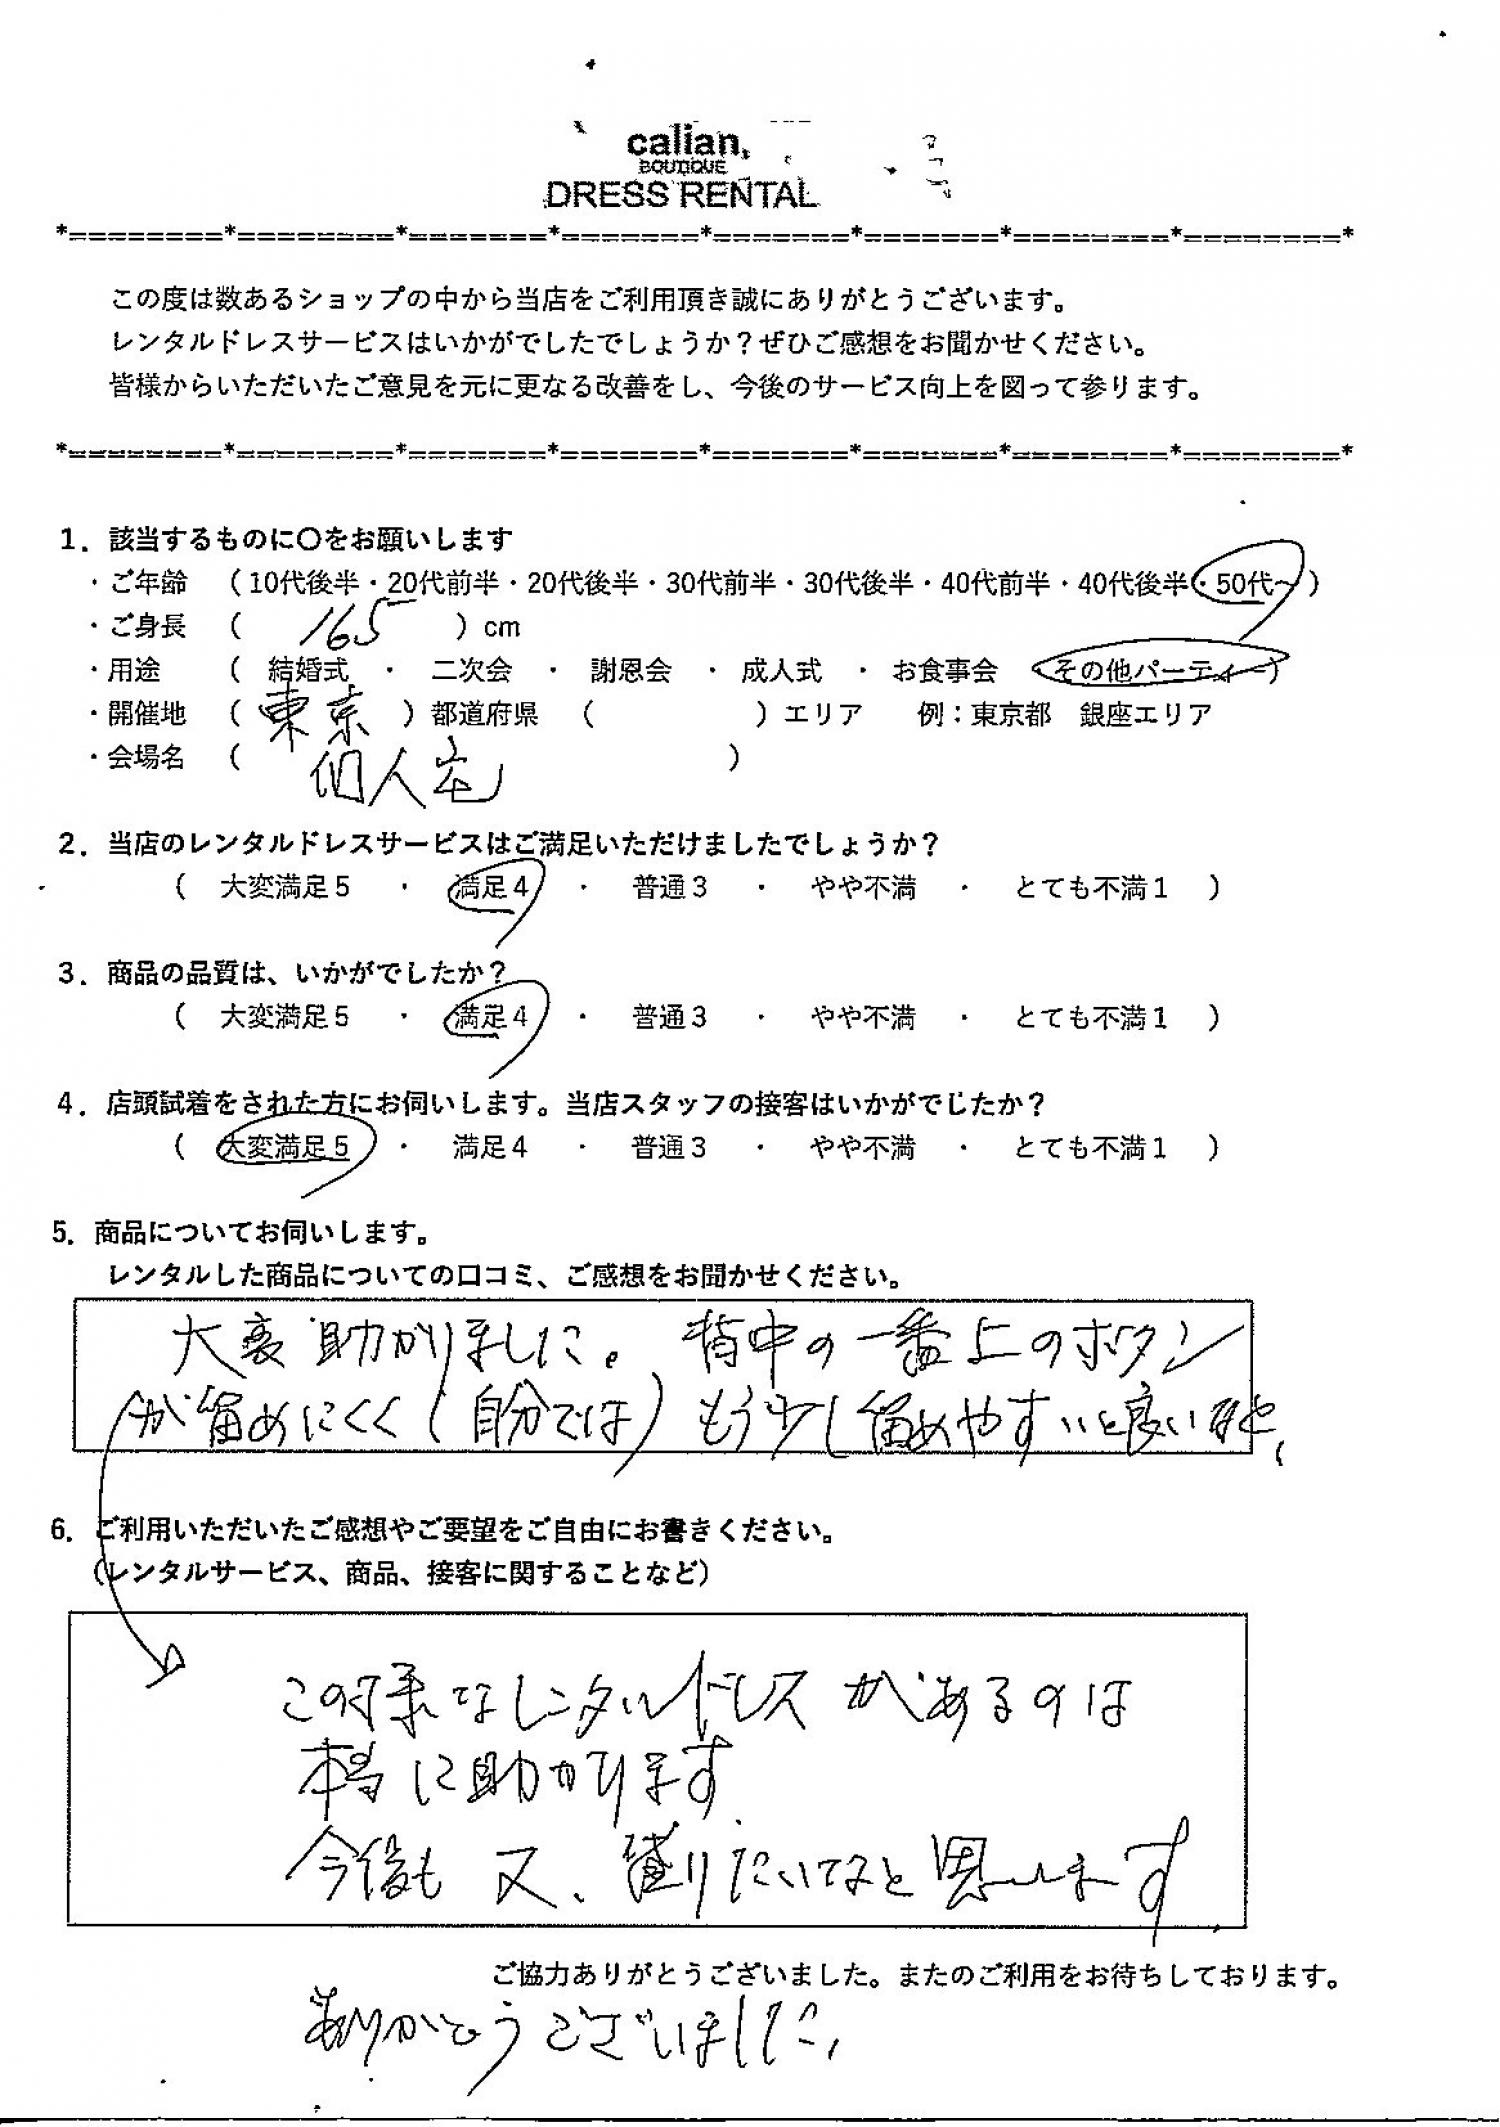 calian.
BOUTIQUE
DRESS RENTAL
*========*========*=======*=======*=======*=======*========*========*
この度は数あるショップの中から当店をご利用頂き誠にありがとうございます。
レンタルドレスサービスはいかがでしたでしょうか?ぜひご感想をお聞かせください。
皆様からいただいたご意見を元に更なる改善をし、今後のサービス向上を図って参ります。
*========*========*=======*=======*=======*=======*========*========*
1. 該当するものに〇をお願いします
・ご年齢 (10代後半・20代前半・20代後半・30代前半・30代後半・40代前半・40代後半・50代~)
・ご身長 ( 165 ) cm
・用途 ( 結婚式 ・ 二次会 ・ 謝恩会 ・ 成人式 ・ お食事会 ・その他パーティー)
・開催地 ( 東京 ) 都道府県 ( ) エリア 例:東京都 銀座エリア
・会場名 ( 個人宅 )
2. 当店のレンタルドレスサービスはご満足いただけましたでしょうか?
( 大変満足5 ・ 満足4 ・ 普通3 ・ やや不満 ・ とても不満1 )
3. 商品の品質は、いかがでしたか?
( 大変満足5 ・ 満足4 ・ 普通3 ・ やや不満 ・ とても不満1 )
4. 店頭試着をされた方にお伺いします。当店スタッフの接客はいかがでしたか?
( 大変満足5 ・ 満足4 ・ 普通3 ・ やや不満 ・ とても不満1 )
5. 商品についてお伺いします。
レンタルした商品についての口コミ、ご感想をお聞かせください。
大変助かりました。背中の一番上のボタン
が留めにくく(自分では)もう少し留めやすいと良いなと、
6. ご利用いただいたご感想やご要望をご自由にお書きください。
(レンタルサービス、商品、接客に関することなど)
この様なレンタルドレスがあるのは
本当に助かります
今後も又、借りたいなと思います
ご協力ありがとうございました。またのご利用をお待ちしております。
ありがとうございました、